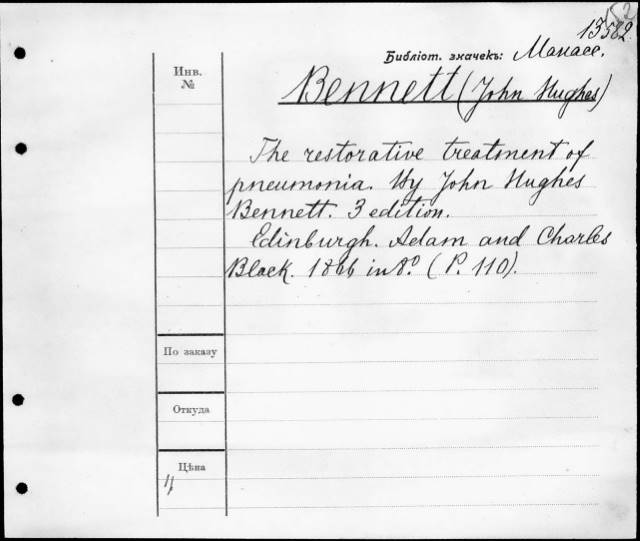 13582
Библіот. значекъ: Манасс.
Инв.
№
Bennett (John Hughes)
The restorative treatment of
pneumonia. By John Hughes
Bennett. 3 edition.
Edinburgh. Adam and Charles
Black. 1866 in 8º. (P. 110).
По заказу
Откуда
Цѣна